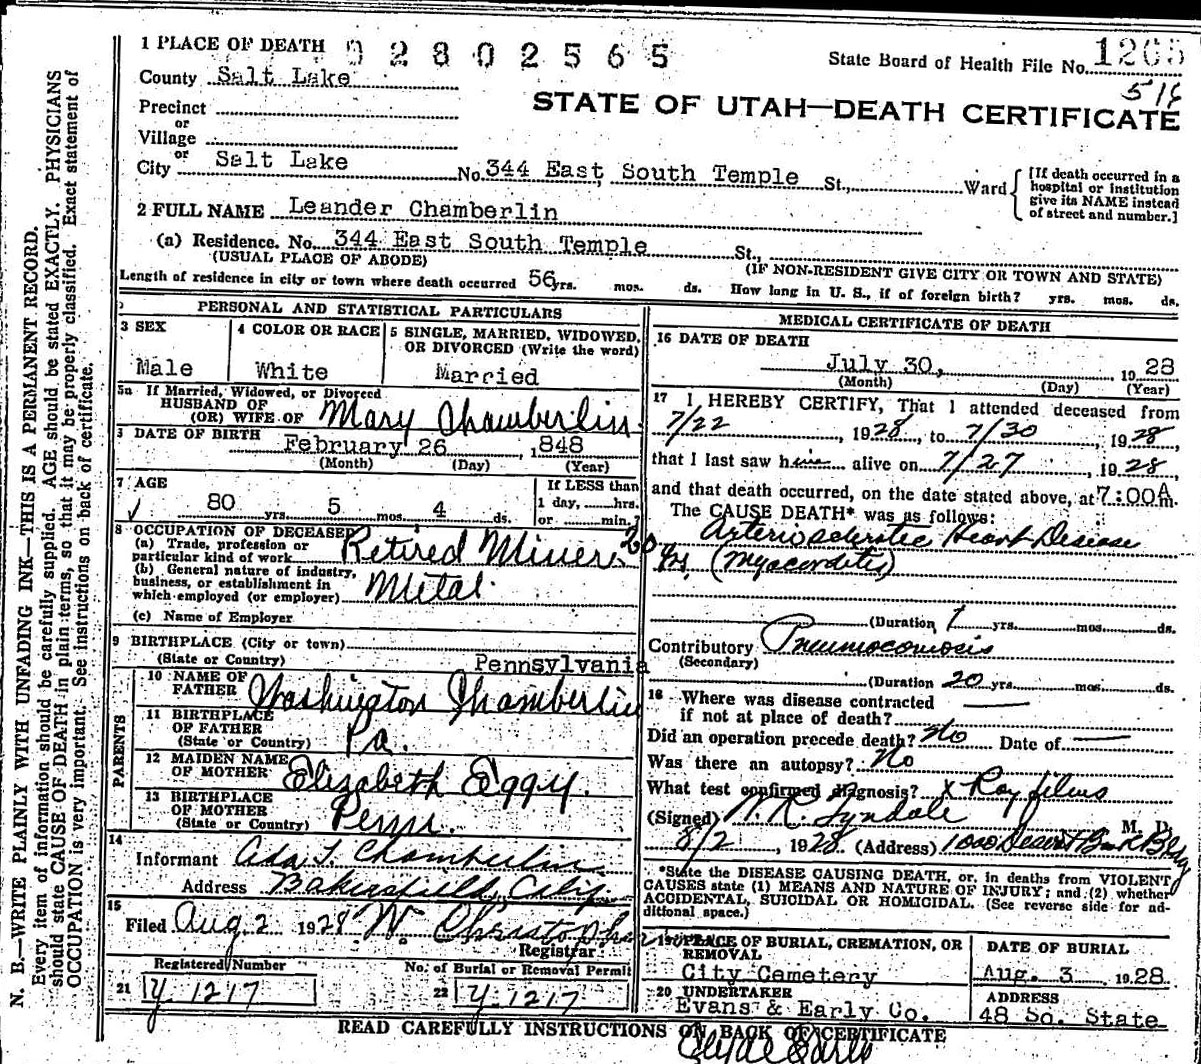 N. B.—WRITE PLAINLY WITH UNFADING INK—THIS IS A PERMANENT RECORD.
Every item of information should be carefully supplied. AGE should be stated EXACTLY. PHYSICIANS
should state CAUSE OF DEATH in plain terms, so that it may be properly classified. Exact statement of
OCCUPATION is very important. See instructions on back of certificate.
1 PLACE OF DEATH 02802565
State Board of Health File No. 1265
516
County Salt Lake
STATE OF UTAH—DEATH CERTIFICATE
Precinct
or
Village
or
City Salt Lake No. 344 East South Temple St., Ward
[If death occurred in a
hospital or institution
give its NAME instead
of street and number.]
2 FULL NAME Leander Chamberlin
(a) Residence. No. 344 East South Temple St.,
(USUAL PLACE OF ABODE) (IF NON-RESIDENT GIVE CITY OR TOWN AND STATE)
Length of residence in city or town where death occurred 56 yrs. mos. ds. How long in U. S., if of foreign birth? yrs. mos. ds.
PERSONAL AND STATISTICAL PARTICULARS
3 SEX
Male
4 COLOR OR RACE
White
5 SINGLE, MARRIED, WIDOWED,
OR DIVORCED (Write the word)
Married
5a If Married, Widowed, or Divorced
HUSBAND OF
(OR) WIFE OF Mary Chamberlin
DATE OF BIRTH February 26, 1848
(Month) (Day) (Year)
7 AGE
80 yrs. 5 mos. 4 ds.
If LESS than
1 day, hrs.
or min.
8 OCCUPATION OF DECEASED
(a) Trade, profession or
particular kind of work Retired Miner 20 yrs
(b) General nature of industry,
business, or establishment in
which employed (or employer) Metal
(c) Name of Employer
9 BIRTHPLACE (City or town)
(State or Country) Pennsylvania
PARENTS
10 NAME OF
FATHER Washington Chamberlin
11 BIRTHPLACE
OF FATHER
(State or Country) Pa.
12 MAIDEN NAME
OF MOTHER Elizabeth Eggy.
13 BIRTHPLACE
OF MOTHER
(State or Country) Penn.
14
Informant Ada L. Chamberlin
Address Bakersfield, Calif.
15
Filed Aug. 2 1928 W. Christopherson
Registrar
Registered Number
21 Y 1217
No. of Burial or Removal Permit
22 Y 1217
MEDICAL CERTIFICATE OF DEATH
16 DATE OF DEATH
July 30, 1928
(Month) (Day) (Year)
17 I HEREBY CERTIFY, That I attended deceased from
7/22, 1928, to 7/30, 1928,
that I last saw him alive on 7/27, 1928
and that death occurred, on the date stated above, at 7:00A m.
The CAUSE DEATH* was as follows:
Arterio sclerotic Heart Disease
(Myocarditis)
(Duration 1 yrs. mos. ds.
Contributory Pneumoconiosis
(Secondary)
(Duration 20 yrs. mos. ds.
18 Where was disease contracted
if not at place of death?
Did an operation precede death? No Date of
Was there an autopsy? No
What test confirmed diagnosis? X Ray films
(Signed) W. R. Tyndale M. D.
8/2, 1928. (Address) 1000 Deseret Bank Bldg
*State the DISEASE CAUSING DEATH, or, in deaths from VIOLENT
CAUSES state (1) MEANS AND NATURE OF INJURY; and (2) whether
ACCIDENTAL, SUICIDAL OR HOMICIDAL. (See reverse side for ad-
ditional space.)
19 PLACE OF BURIAL, CREMATION, OR
REMOVAL
City Cemetery
DATE OF BURIAL
Aug. 3 1928
20 UNDERTAKER
Evans & Early Co.
ADDRESS
48 So. State
READ CAREFULLY INSTRUCTIONS ON BACK OF CERTIFICATE
Clyde Early